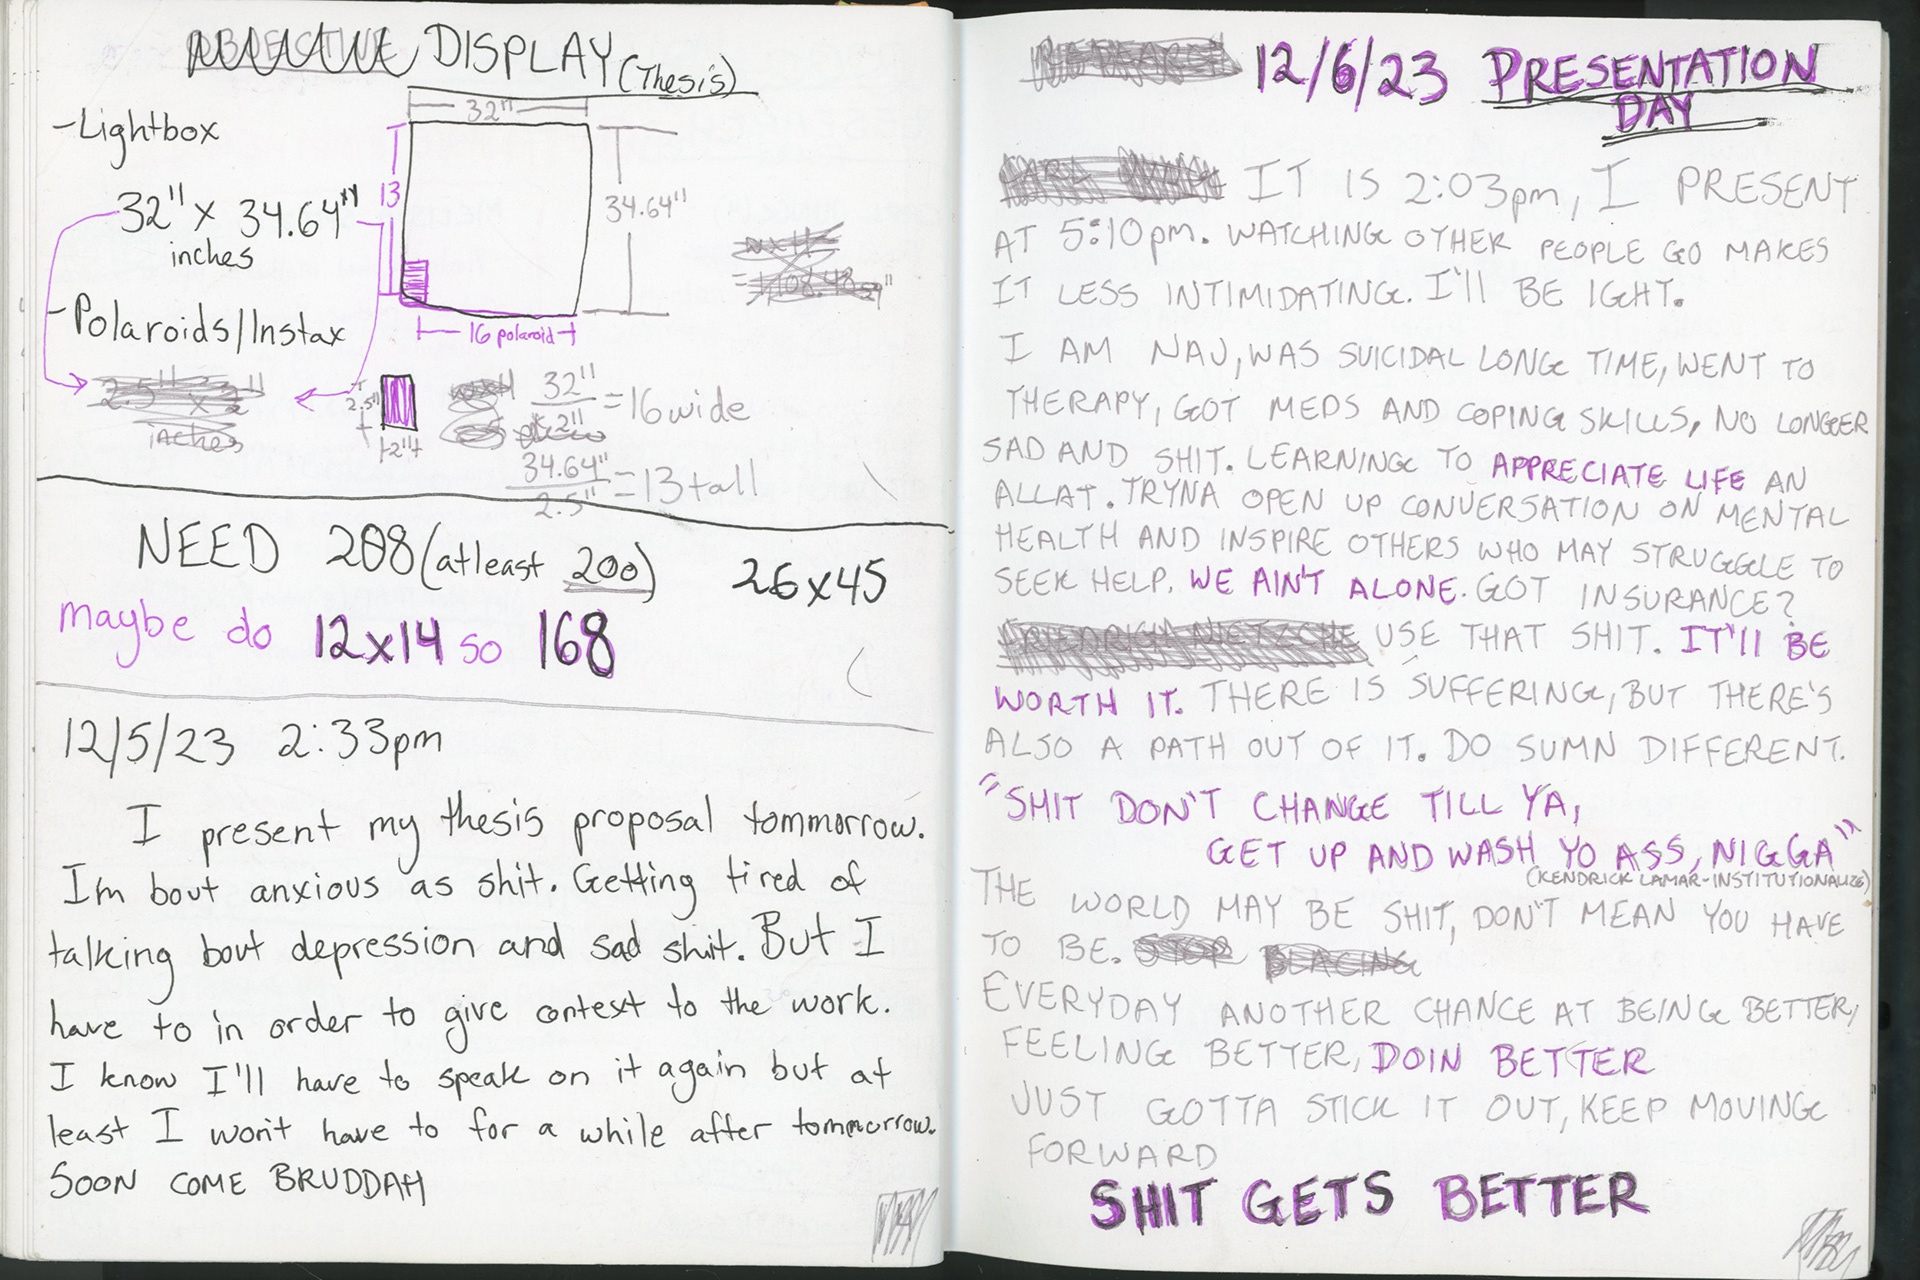 DISPLAY (Thesis)
-Lightbox
32" x 34.64"
inches
-Polaroids/Instax
2.5" x 2"
inches
32"
13
34.64"
16 polaroid
2.5"
2"
32"
2"
=16 wide
34.64"
2.5"
=13 tall
NEED 208 (atleast 200)
26x45
maybe do 12x14 so 168
12/5/23 2:33pm
I present my thesis proposal tommorrow.
I'm bout anxious as shit. Getting tired of
talking bout depression and sad shit. But I
have to in order to give context to the work.
I know I'll have to speak on it again but at
least I won't have to for a while after tommorrow.
SOON COME BRUDDAH
12/6/23 PRESENTATION
DAY
IT IS 2:03pm, I PRESENT
AT 5:10pm. WATCHING OTHER PEOPLE GO MAKES
IT LESS INTIMIDATING. I'll BE IGHT.
I AM NAJ, WAS SUICIDAL LONG TIME, WENT TO
THERAPY, GOT MEDS AND COPING SKILLS, NO LONGER
SAD AND SHIT. LEARNING TO APPRECIATE LIFE AN
ALLAT. TRYNA OPEN UP CONVERSATION ON MENTAL
HEALTH AND INSPIRE OTHERS WHO MAY STRUGGLE TO
SEEK HELP. WE AIN'T ALONE. GOT INSURANCE?
FRIEDRICH NIETZCHE USE THAT SHIT. IT'll BE
WORTH IT. THERE IS SUFFERING, BUT THERE'S
ALSO A PATH OUT OF IT. DO SUMN DIFFERENT.
"SHIT DON'T CHANGE TILL YA,
GET UP AND WASH YO ASS, NIGGA"
(KENDRICK LAMAR-INSTITUTIONALIZE)
THE WORLD MAY BE SHIT, DON'T MEAN YOU HAVE
TO BE. STOP BLACING
EVERYDAY ANOTHER CHANCE AT BEING BETTER,
FEELING BETTER, DOIN BETTER
JUST GOTTA STICK IT OUT, KEEP MOVING
FORWARD
SHIT GETS BETTER